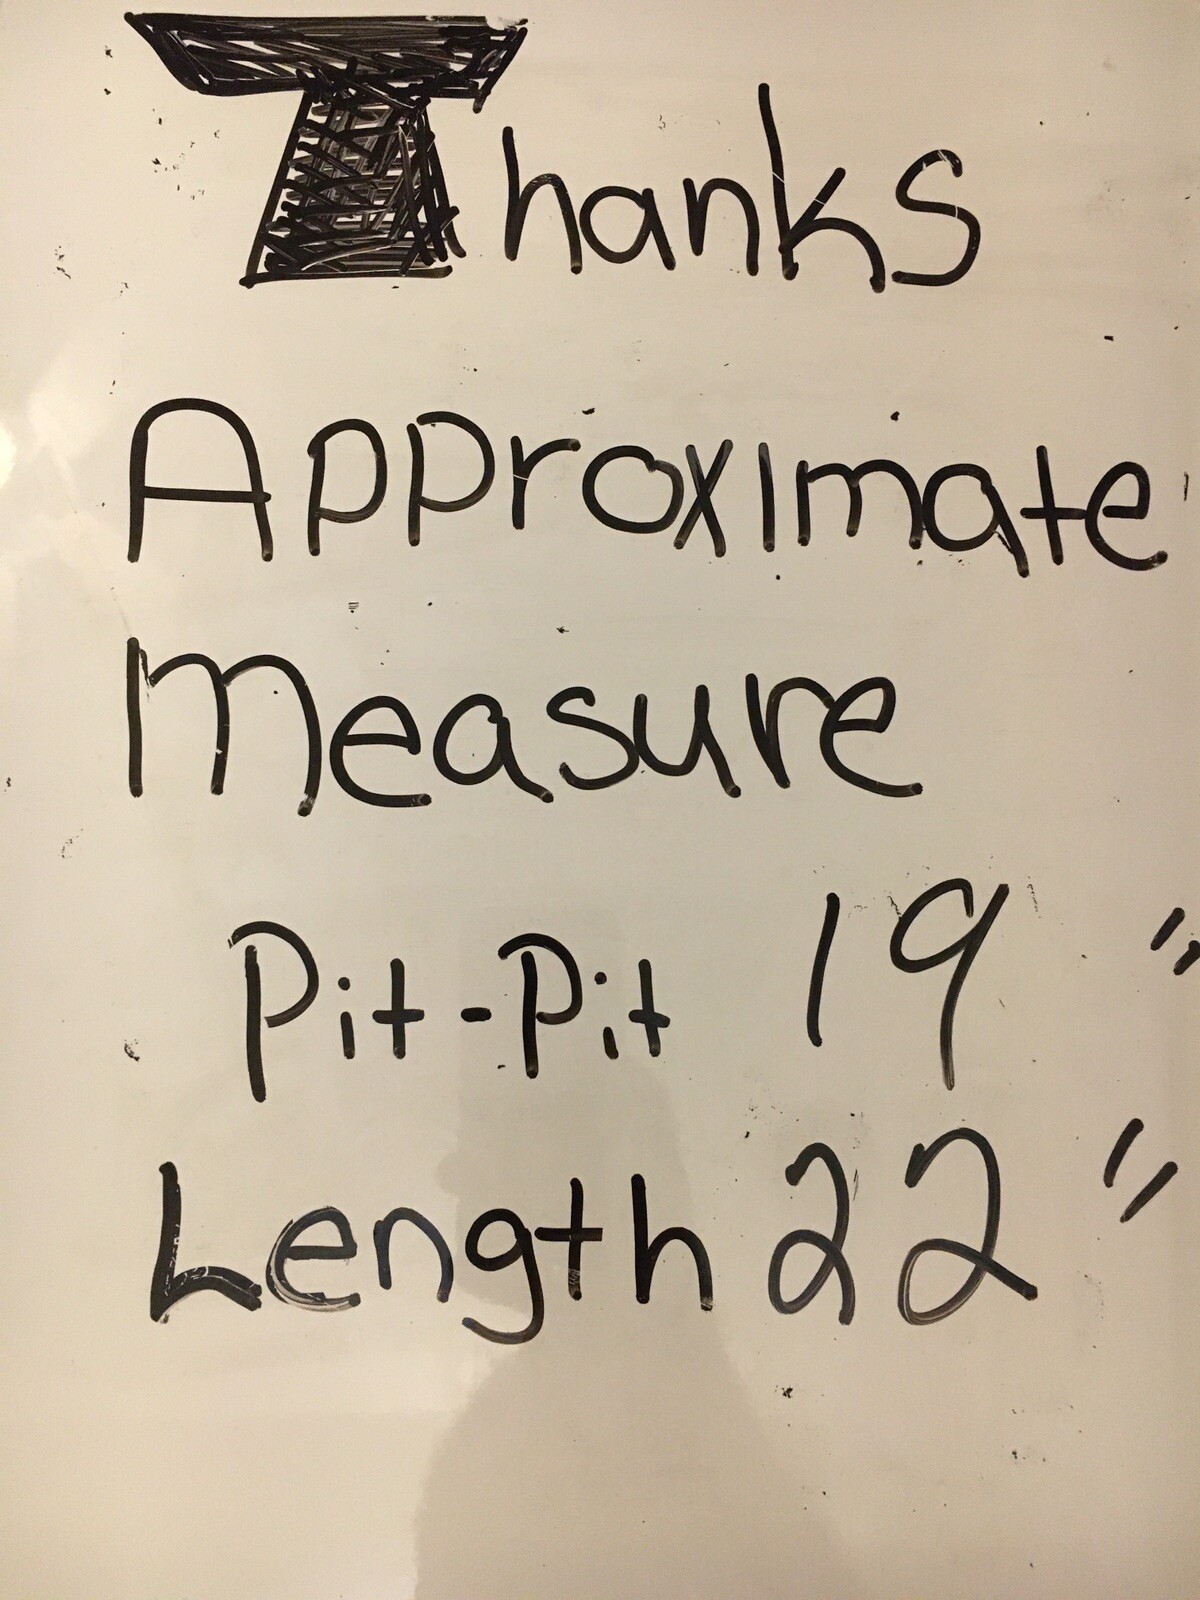 Thanks
Approximate
Measure
Pit-Pit 19 "
Length 22 "